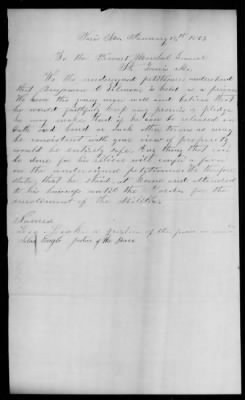 To the Provost Marshal General
St Louis Mo.
We the undersigned petitioners understand
that Benjamin is held as a prisoner
We know this young man well and believe that
he would faithfully keep and promise a pledge
he may make. And if he can be released on
Oath and bond or such other terms as may
be consistent with your view of propriety
would be entirely safe. Any thing that can
be done for his release will confer a favor
on the undersigned petitioners. We therefore
state that he staid at home and attended
to his business until the Order for the
enrolement of the Militia
Names
a justice of the peace
Justice of the Peace